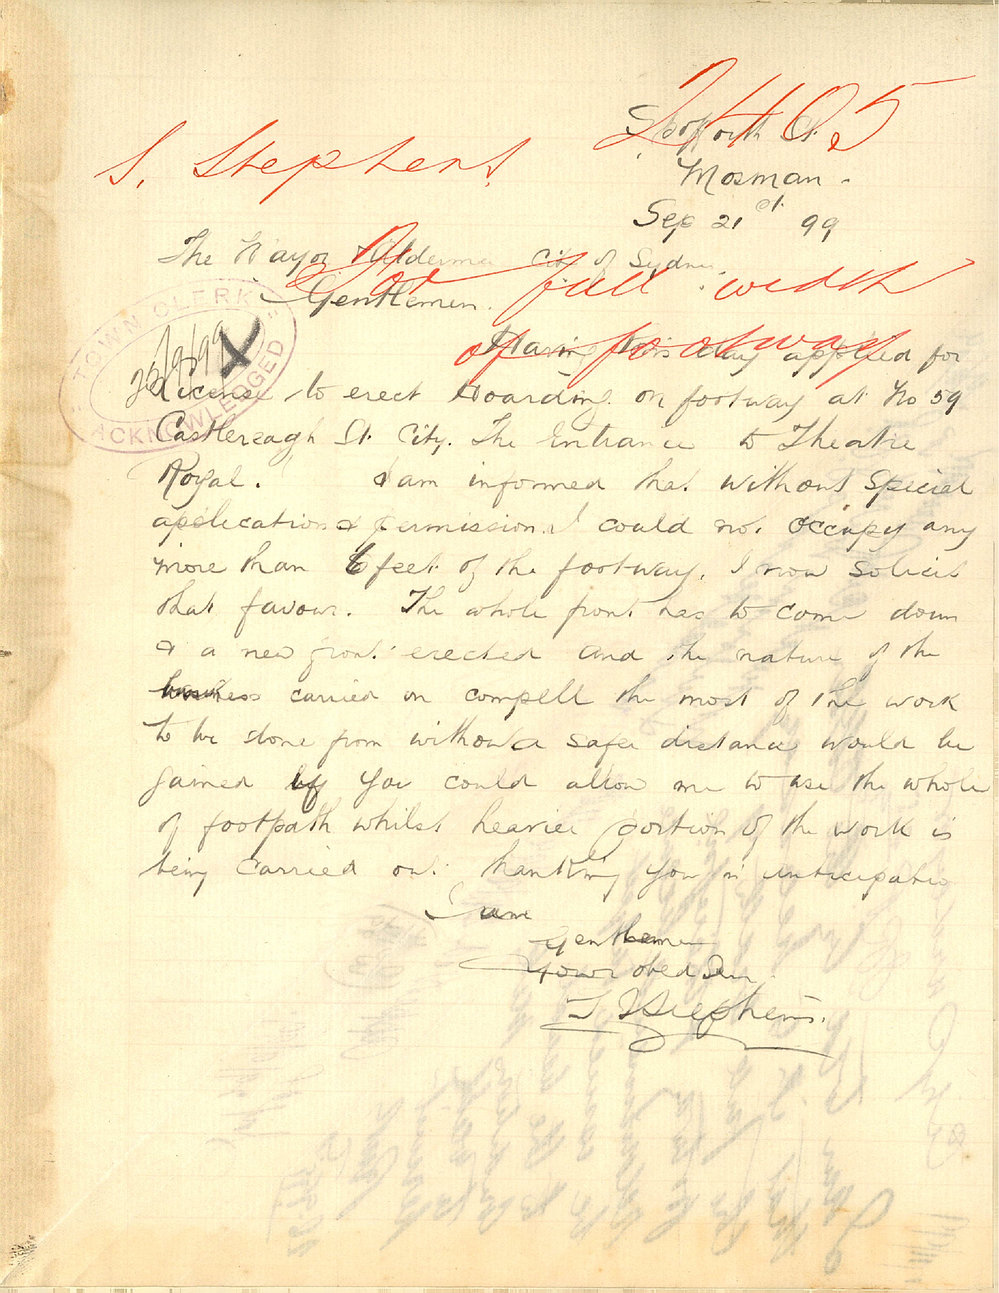 2405
S. Stephens
Spofforth St.
Mosman.
Sep 21st 99
The Mayor & Aldermen City of Sydney.
Gentlemen.
Re full width
of footway
TOWN CLERK
25/9/99 X
ACKNOWLEDGED
Having this day applied for
License to erect Hoarding on footway at No 59
Castlereagh St. City. The Entrance to Theatre
Royal. I am informed that without Special
application & permission I could not occupy any
more than 6 feet of the footway. I now Solicit
that favour. The whole front has to come down
& a new front erected and the nature of the
business carried on compell the most of the work
to be done from without a safe distance would be
gained if you could allow me to use the whole
of footpath whilst heavier portion of the work is
being carried out. Thanking you in anticipation
I am
Gentlemen
Your obed Ser.
Stephens.